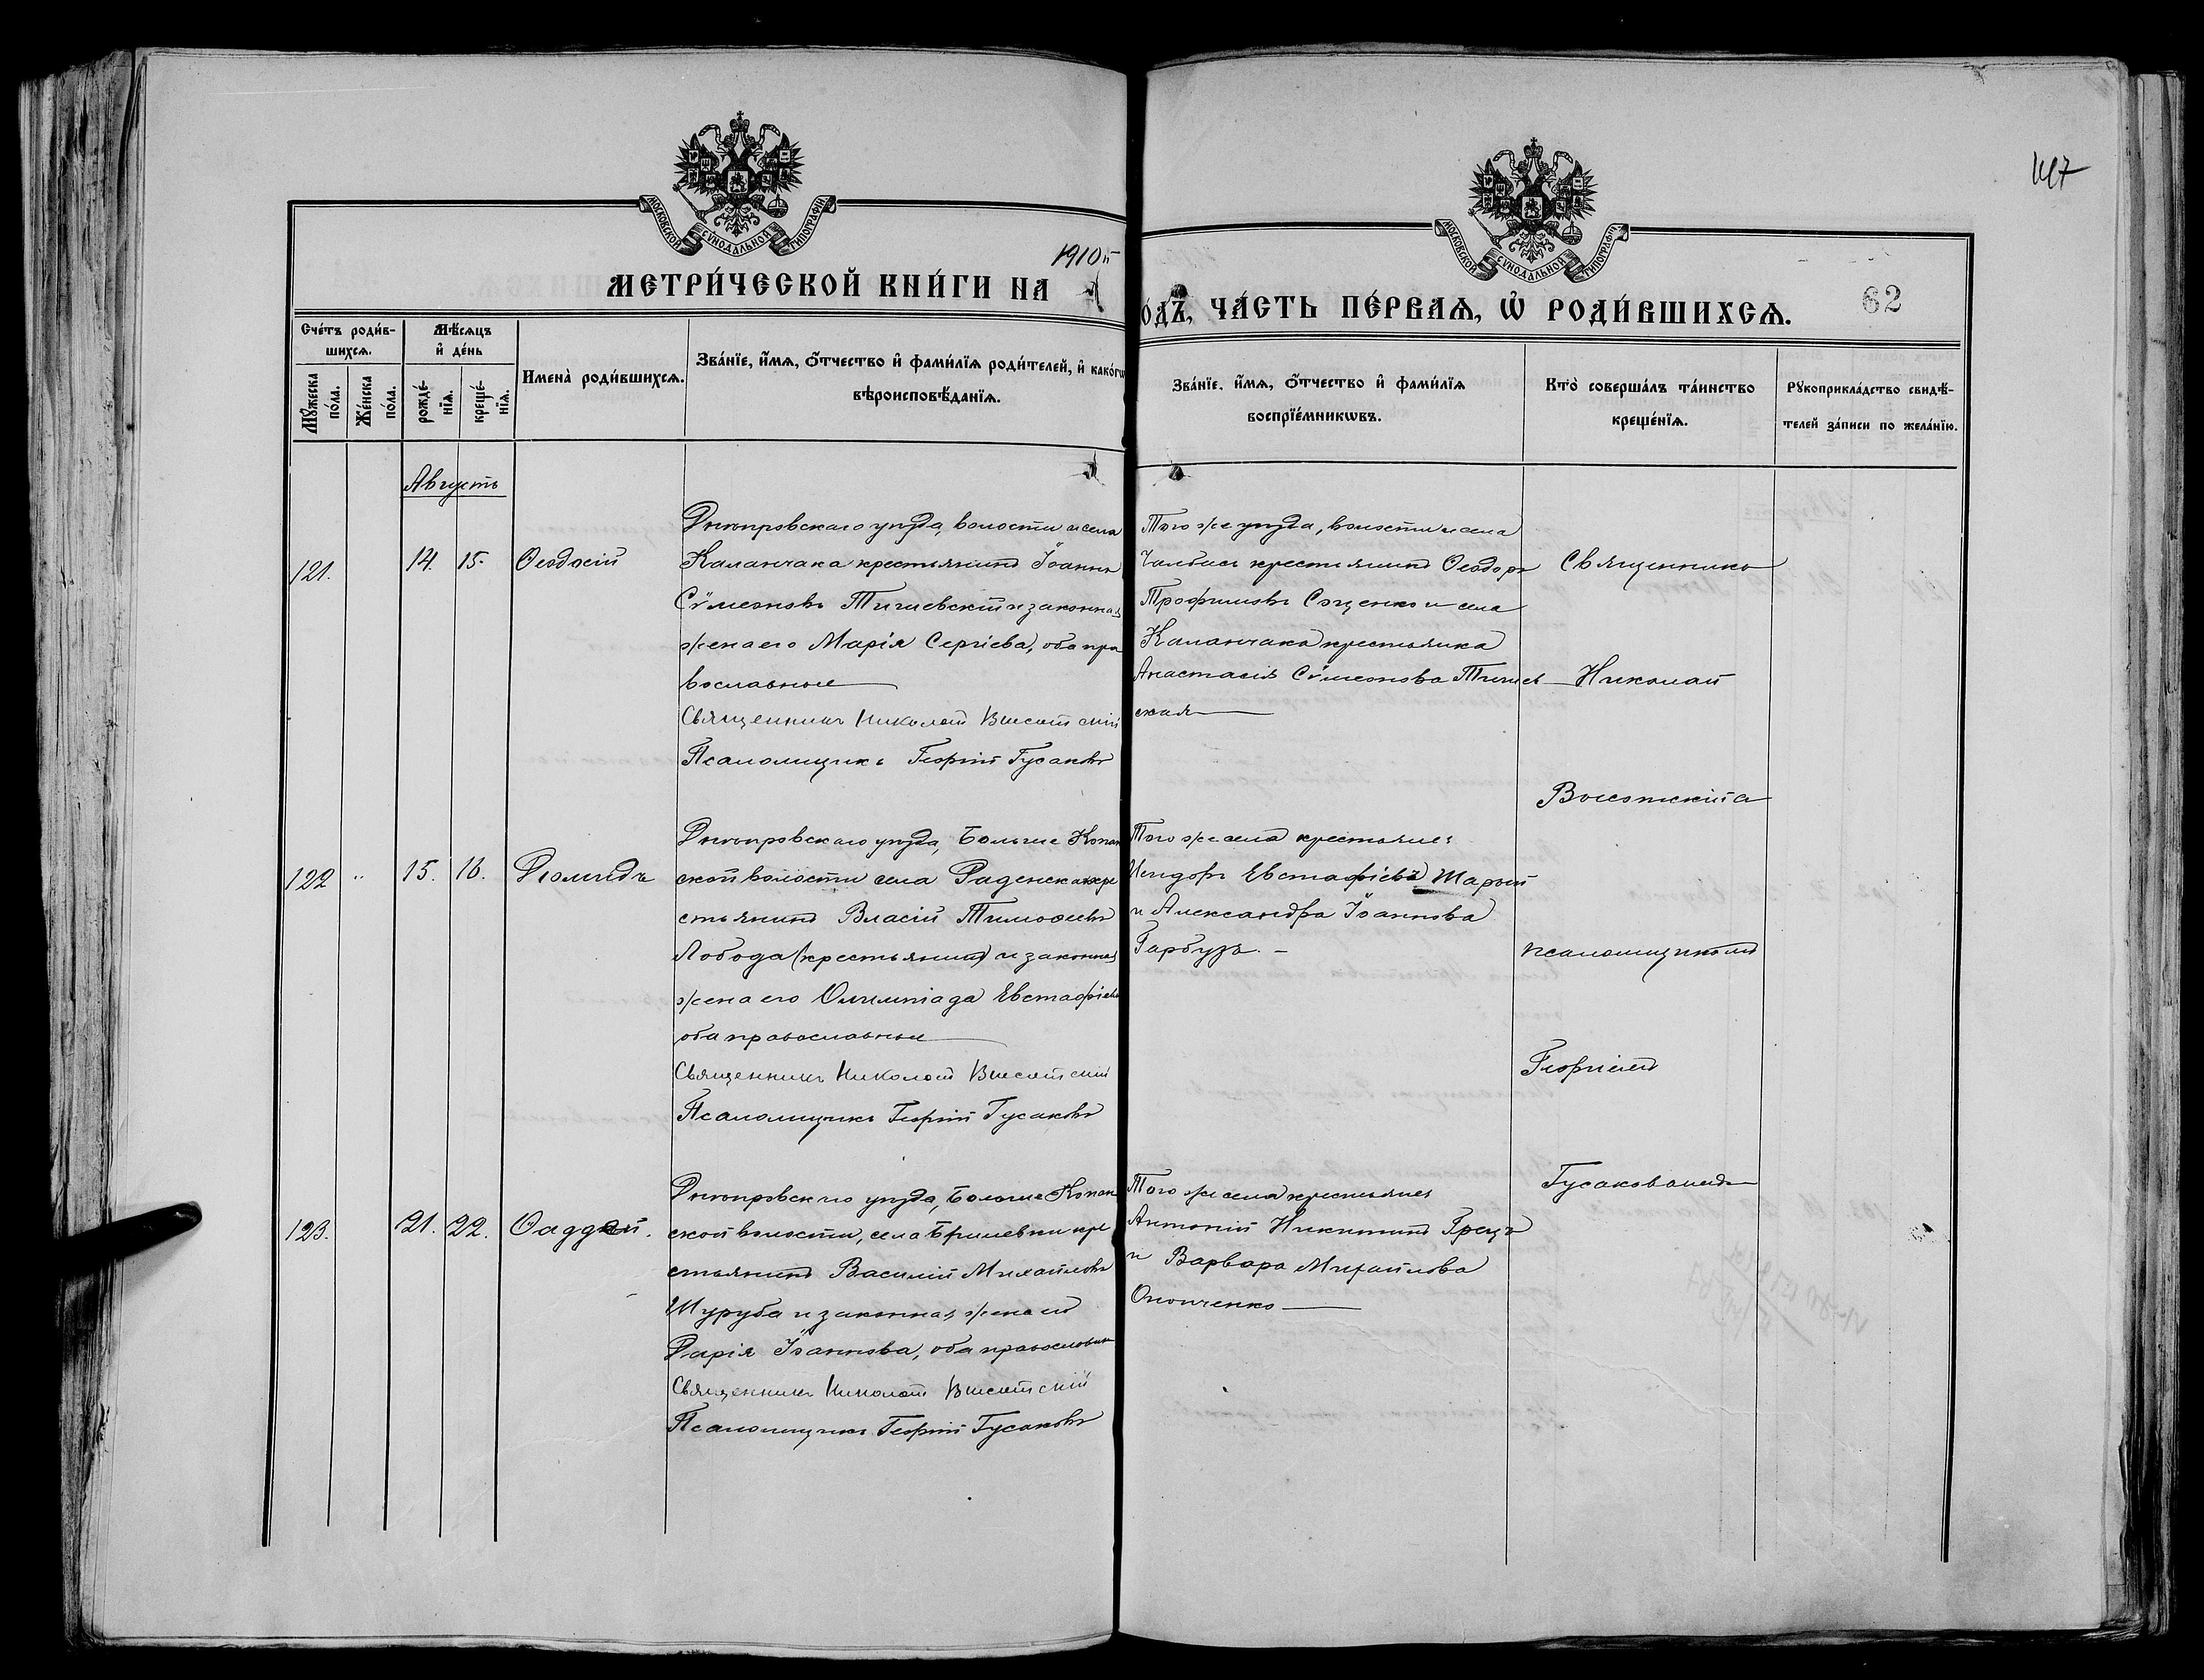 МОСКОВСКОЙ СѴНОДАЛЬНОЙ ТИПОГРАФІИ
МОСКОВСКОЙ СѴНОДАЛЬНОЙ ТИПОГРАФІИ
147
1910
МЕТРИ́ЧЕСКОЙ КНИ́ГИ НА
О́ДЪ, ЧА́СТЬ ПЕ́РВАѦ, Ѡ҆ РОДИ́ВШИХСѦ.
62
Сче́тъ роди́в-
шихсѧ.
Мѣ́сѧцъ
и҆ де́нь
Мꙋ́жеска
по́ла.
Же́нска
по́ла.
рожде́-
нїѧ.
креще́-
нїѧ.
Имена̀ роди́вшихсѧ.
Зва́нїе, и҆́мѧ, ѻ҆́тчество и҆ фами́лїѧ роди́телей, и҆ како́гѡ
вѣроисповѣ́данїѧ.
Зва́нїе, и҆́мѧ, ѻ҆́тчество и҆ фами́лїѧ
воспрїе́мникѡвъ.
Кто̀ соверша́лъ та́инство
креще́нїѧ.
Рꙋкоприкла́дство свидѣ́-
телей за́писи по жела́нїю.
Августъ
121.
14.
15.
Ѳеодосій
Днѣпровскаго уѣзда, волости и села
Каланчака крестьянинъ Іоаннъ
Сѵмеоновъ Тичиевскій и законная
жена его Марія Сергіева, оба пра
вославные
Священникъ Николай Высотскій
Псаломщикъ Георгій Гусаковъ
Того же уѣзда, волости и села
Чалбасъ крестьянинъ Ѳеодоръ
Трофимовъ Сощенко и села
Каланчака крестьянка
Анастасія Сѵмеонова Тичиев
ская
Священникъ
Николай
Высотскій а
122
"
15.
16.
Діомидъ
Днѣпровскаго уѣзда, Больше Копан
ской волости села Раденска кре
стьянинъ Власій Тимоѳеевъ
Лобода (крестьянинъ) и законная
жена его Олимпіада Евстафіева
оба православные
Священникъ Николай Высотскій
Псаломщикъ Георгій Гусаковъ
Того же села крестьяне:
Исидоръ Евстафіевъ Шарый
и Александра Іоаннова
Гарбузъ. -
псаломщикомъ
Георгіемъ
123.
21.
22.
Ѳаддей.
Днѣпровскаго уѣзда, Больше Копан
ской волости, села Брилевки кре
стьянинъ Василій Михайловъ
Шуруба и законная жена его
Дарія Іоаннова, оба православн
Священникъ Николай Высотскій
Псаломщикъ Георгій Гусаковъ
Того же села крестьяне
Антоній Никитинъ Грецъ
и Варвара Михайлова
Онопченко
Гусаковымъ